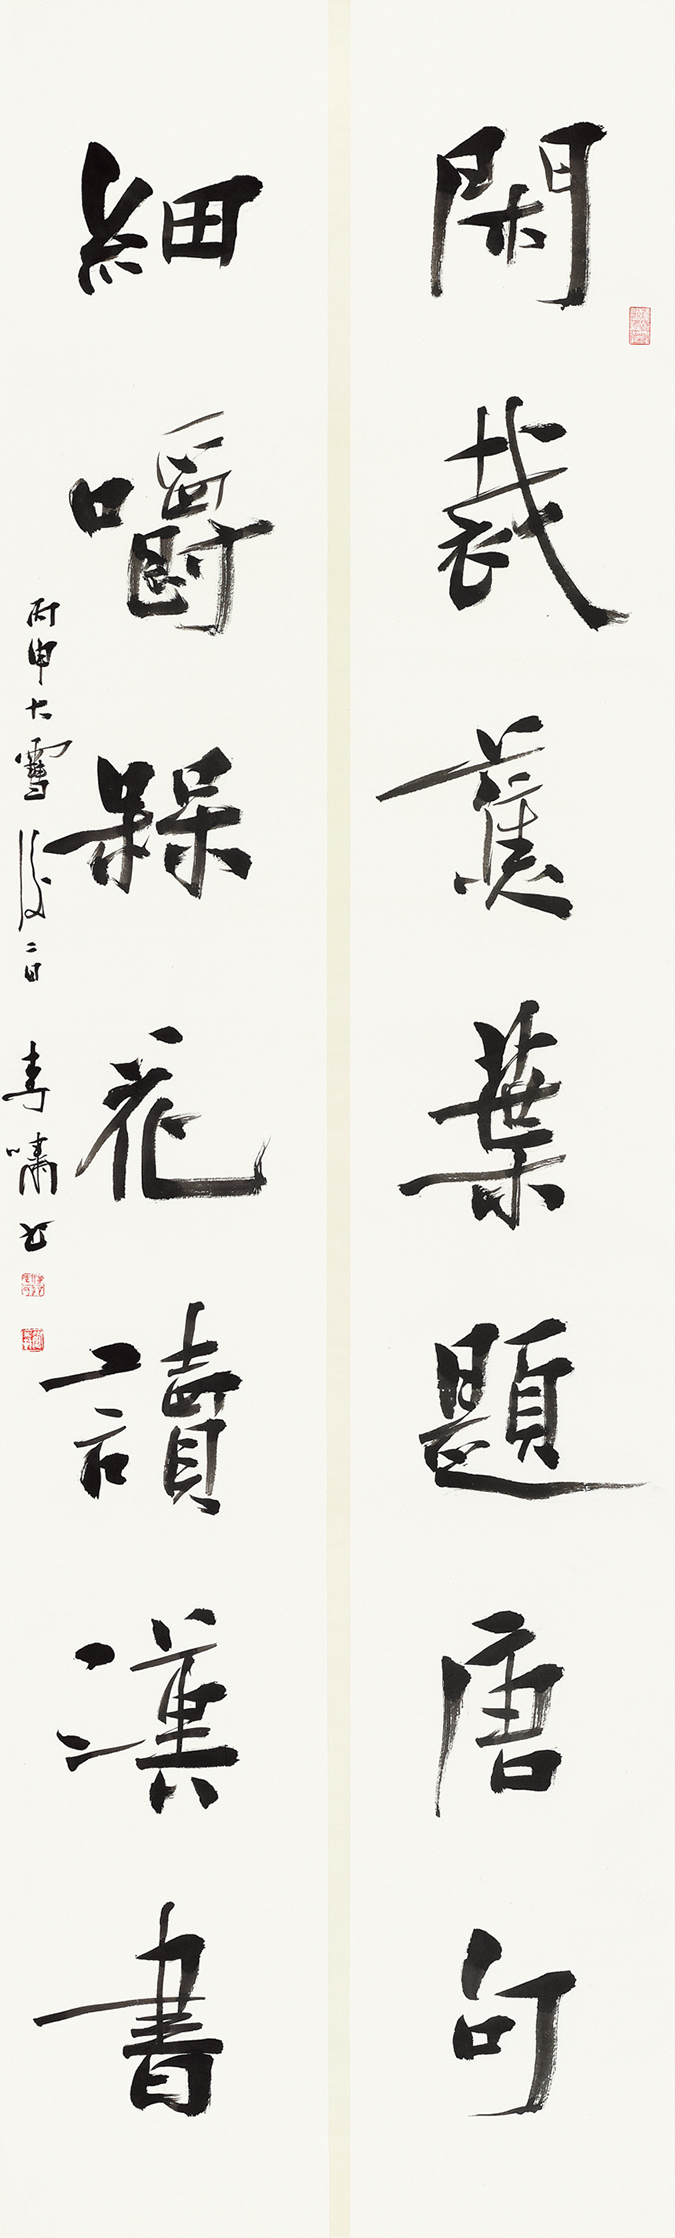 閑裁蕉葉題唐句
細嚼梅花讀漢書
丙申大雪後二日 青嘯書